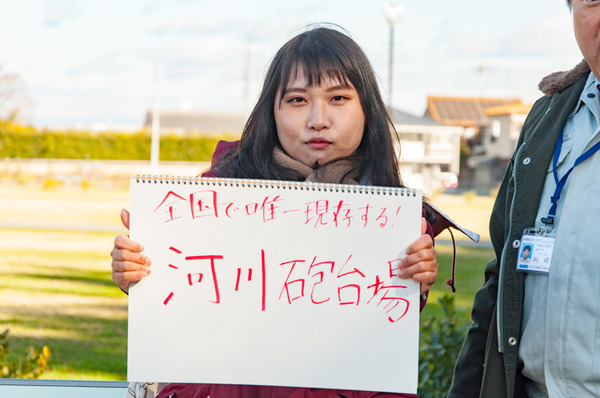 全国で唯一現存する!
河川砲台場